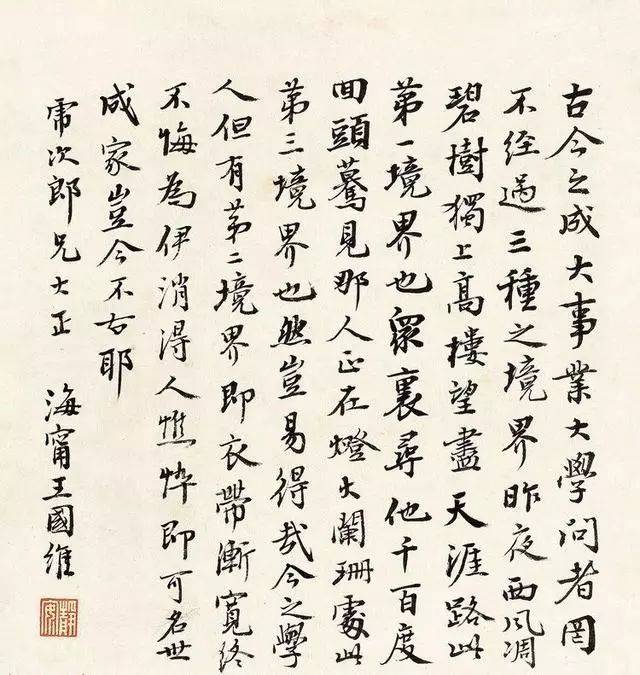 古今之成大事業大學問者罔
不經過三種之境界昨夜西風凋
碧樹獨上高樓望盡天涯路此
第一境界也衆裏尋他千百度
回頭驀見那人正在燈火闌珊處此
第三境界也然豈易得哉今之學
人但有第二境界即衣帶漸寬終
不悔為伊消得人憔悴即可名世
成家豈今不古耶
帘次郎兄大正
海甯王國維